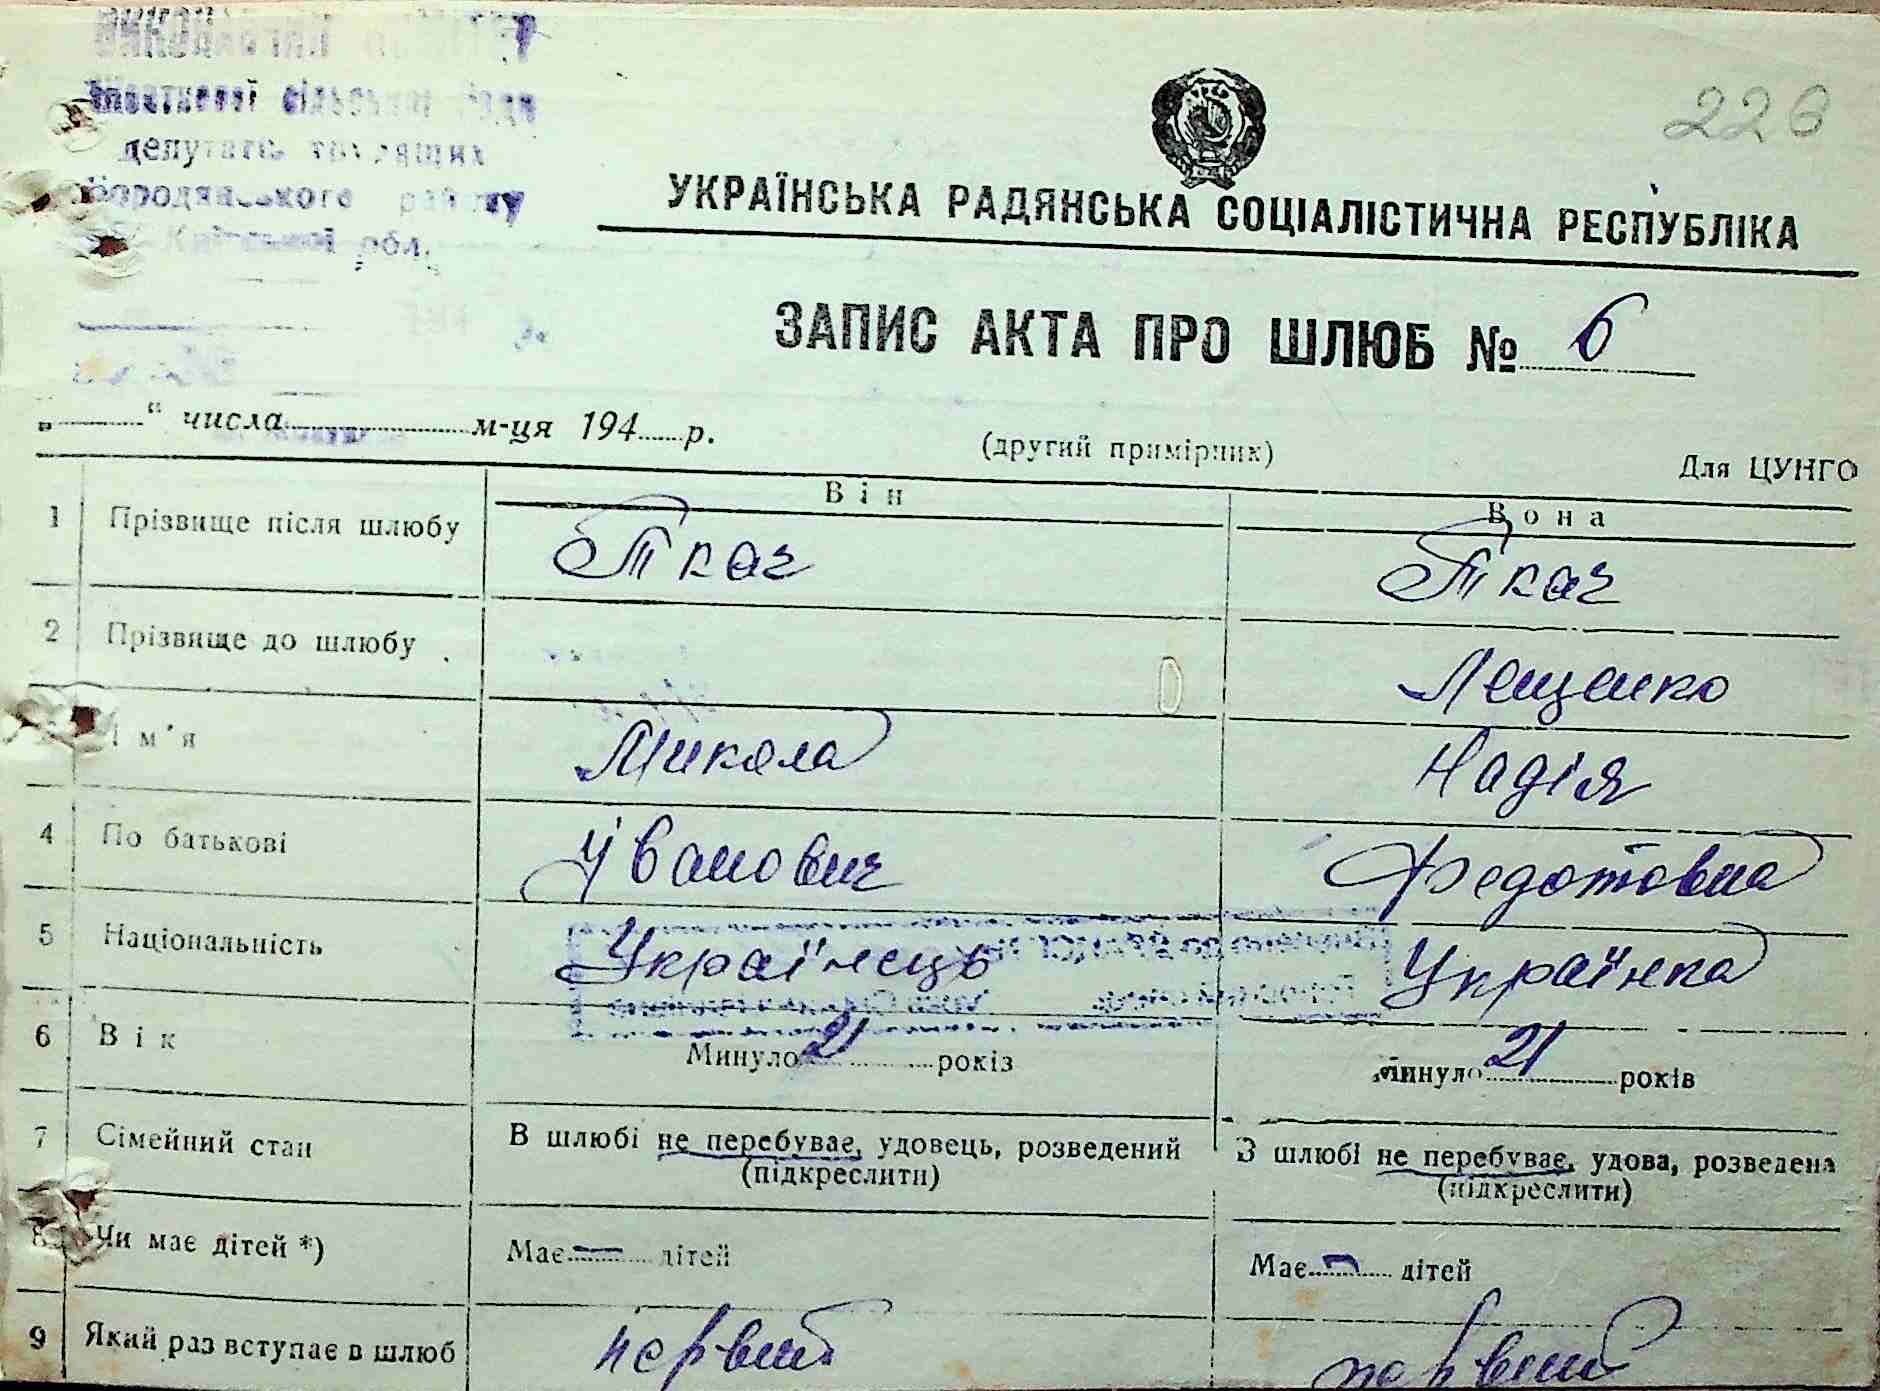 депутатів трудящих
Бородянського району
Київської обл.
226
УКРАЇНСЬКА РАДЯНСЬКА СОЦІАЛІСТИЧНА РЕСПУБЛІКА
ЗАПИС АКТА ПРО ШЛЮБ № 6
„ “ числа м-ця 194 р.
(другий примірник)
Для ЦУНГО
Він Вона
1 Прізвище після шлюбу Ткач Ткач
2 Прізвище до шлюбу Лещенко
Ім'я Микола Надія
4 По батькові Іванович Федотовна
5 Національність Українець Українка
6 Вік Минуло 21 років Минуло 21 років
7 Сімейний стан В шлюбі не перебуває, удовець, розведений В шлюбі не перебуває, удова, розведена
(підкреслити) (підкреслити)
8 Чи має дітей *) Має — дітей Має — дітей
9 Який раз вступає в шлюб первий первий